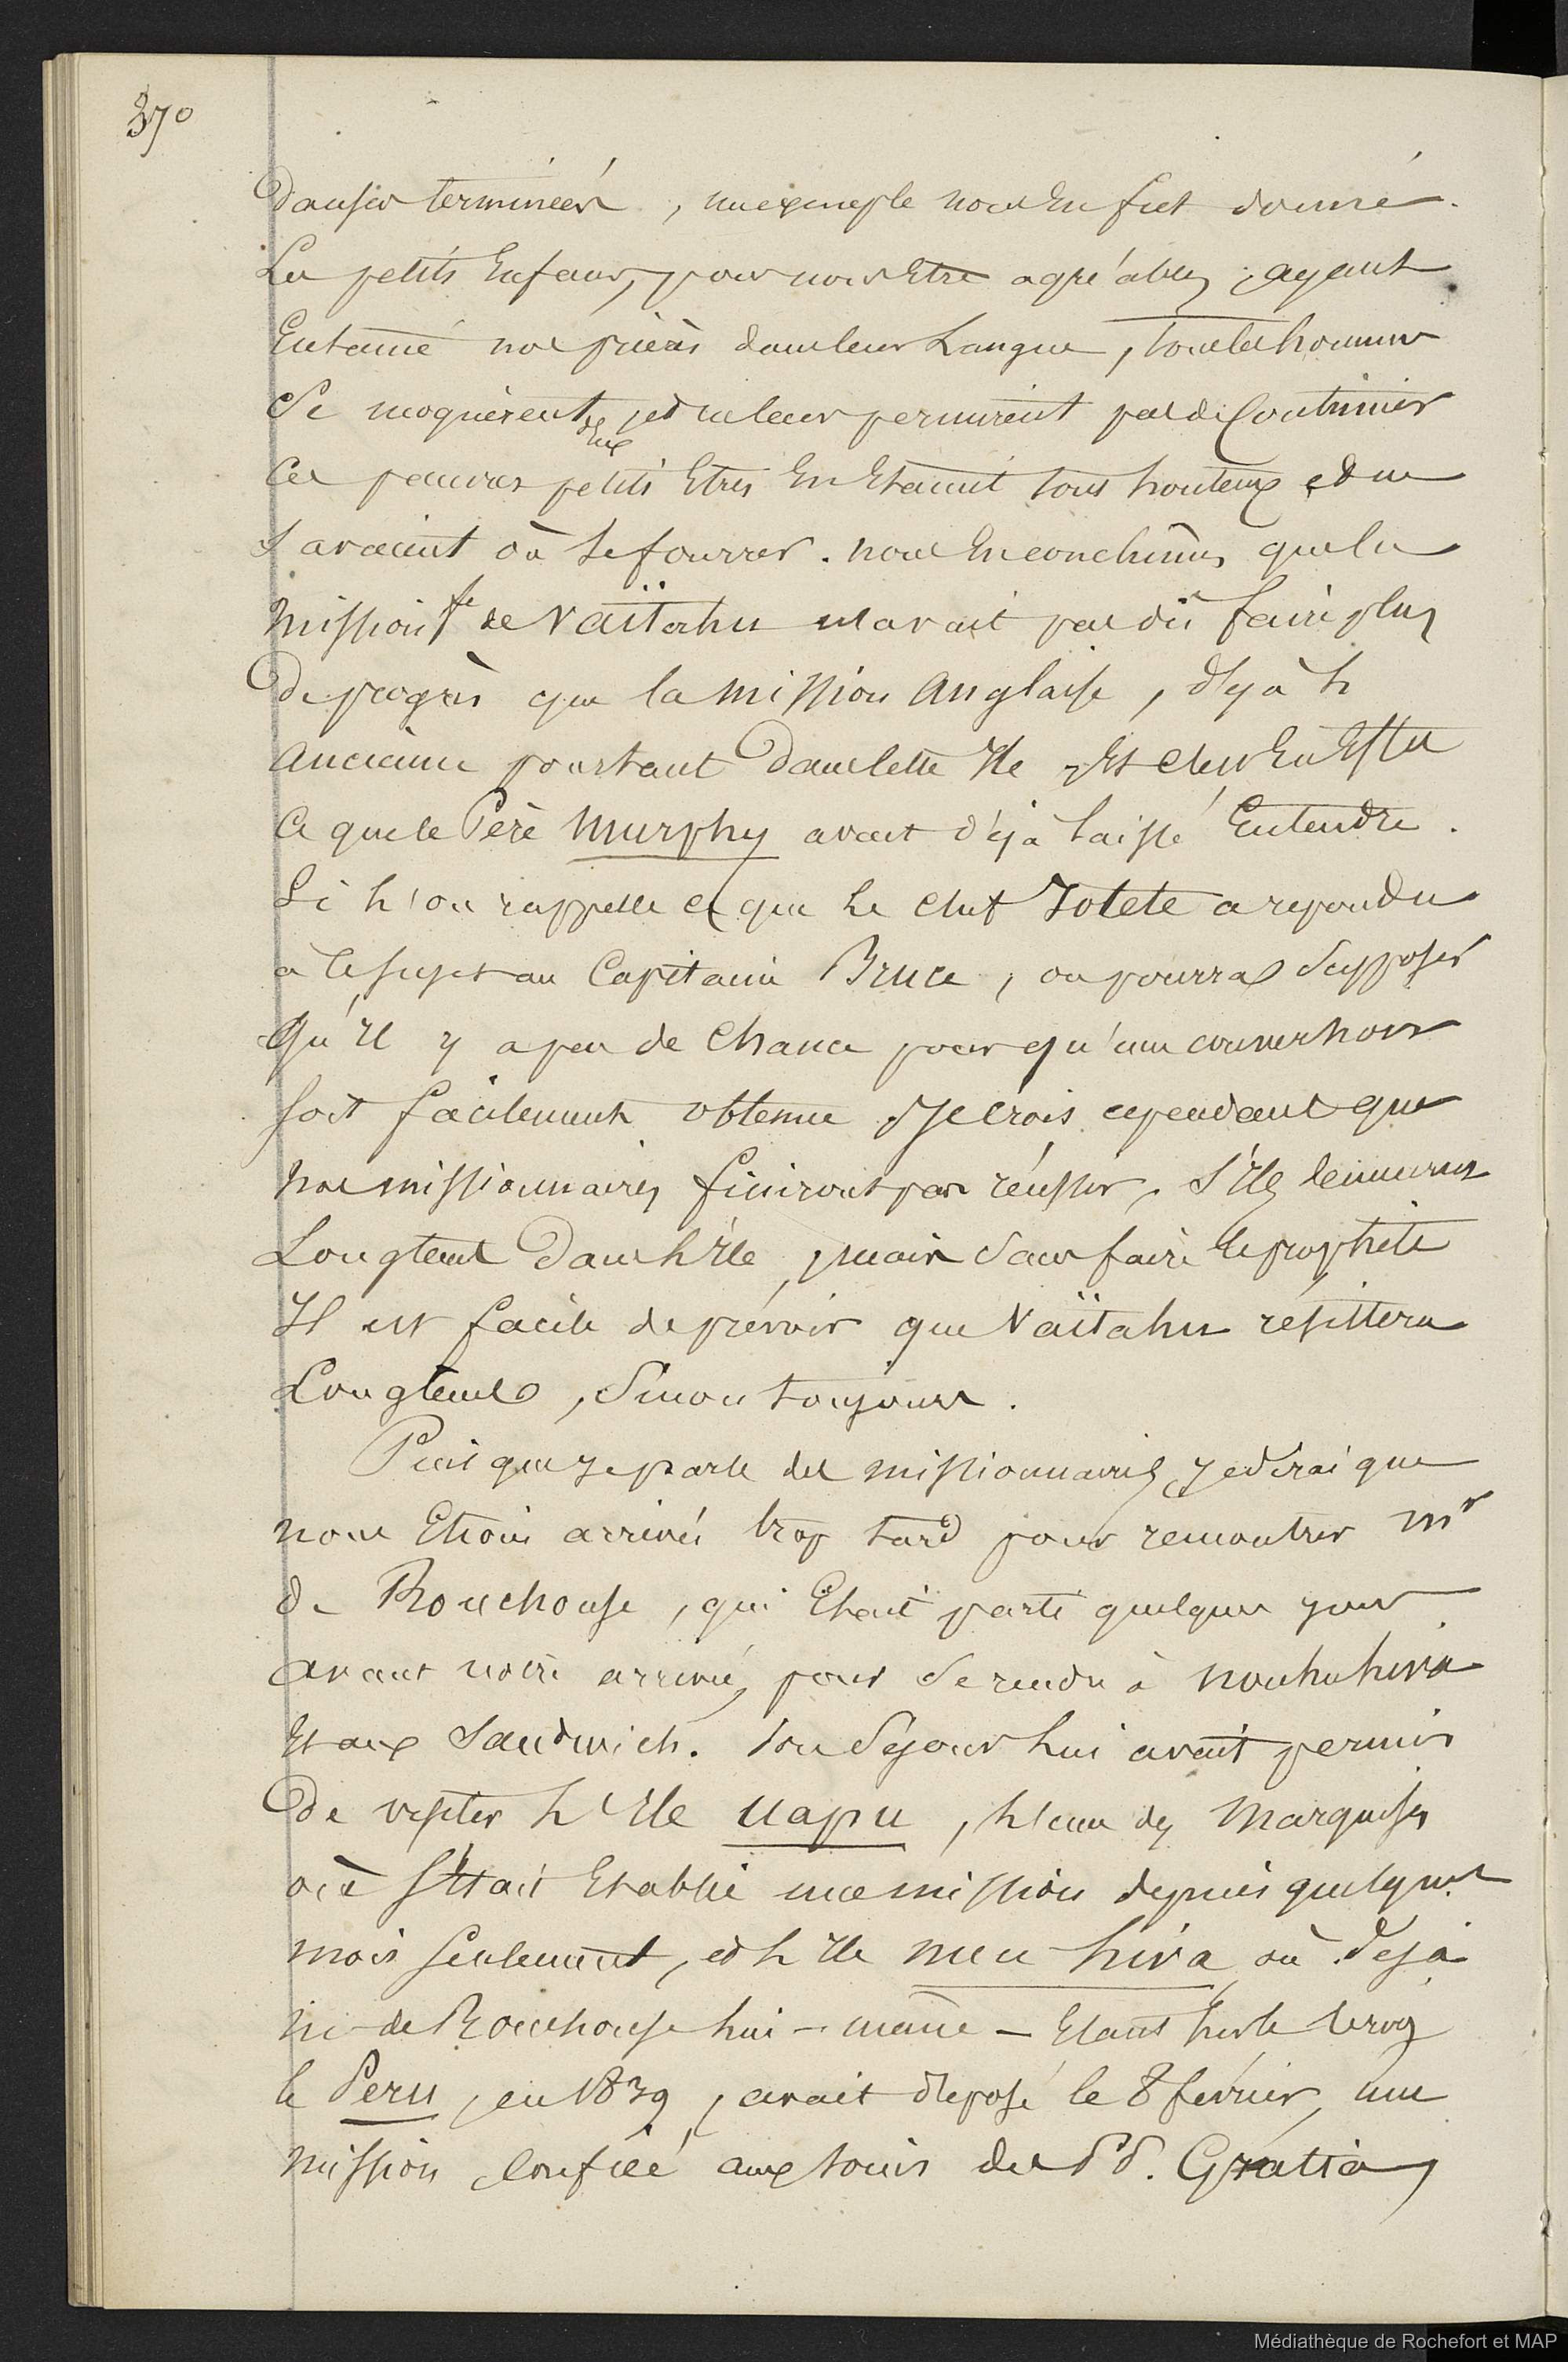 370
Danses terminées, un exemple nous en fut donné.
Les petits Enfans, pour nous Etre agréables, ayant
Entamé nos prières dans leur Langue, tous les hommes
Se moquèrent d'eux, et ne leur permirent pas de Continuer
Ces pauvres petits Etres En Etaient tous honteux et ne
Savaient où se fourrer. nous En conclûmes que la
Mission fse de Vaïtahu n'avait pas dû faire plus
De progrès que la Mission Anglaise, déjà
Ancienne pourtant Dans cette Ile, Et c'est En Effet
Ce que le Père Murphy avait déjà laissé Entendre.
Si l'on rappelle ce que le chef Iotete a repondu
à ce sujet au Capitaine Bruce, on pourra Supposer
Qu'Il y a peu de Chance pour qu'une conversion
soit facilement obtenue. Je crois cependant que
nos missionnaires finiront par réussir, S'Ils demeurent
Longtems Dans l'Ile, mais Sans faire le prophète
Il est facile de prévoir que Vaïtahu résistera
Longtems, Sinon toujours.
Puisque Je parle des missionnaires, Je dirai que
nous Etions arrivés trop tard pour rencontrer Mr
de Rouchouse, qui Etait parti quelques jours
avant notre arrivée, pour Se rendre à Nouhuhiva
Et aux Sandwich. Son Séjour lui avait permis
De visiter l'Ile Uapu, l'une des Marquises
où S'Etait Etablie une mission depuis quelques
mois seulement, et l'Ile
 où déjà
Mr de Rouchouse lui-même - Etant sur le
le Peru, en 1839, avait déposé le 8 février, une
mission confiée aux soins des PP. Gratia,